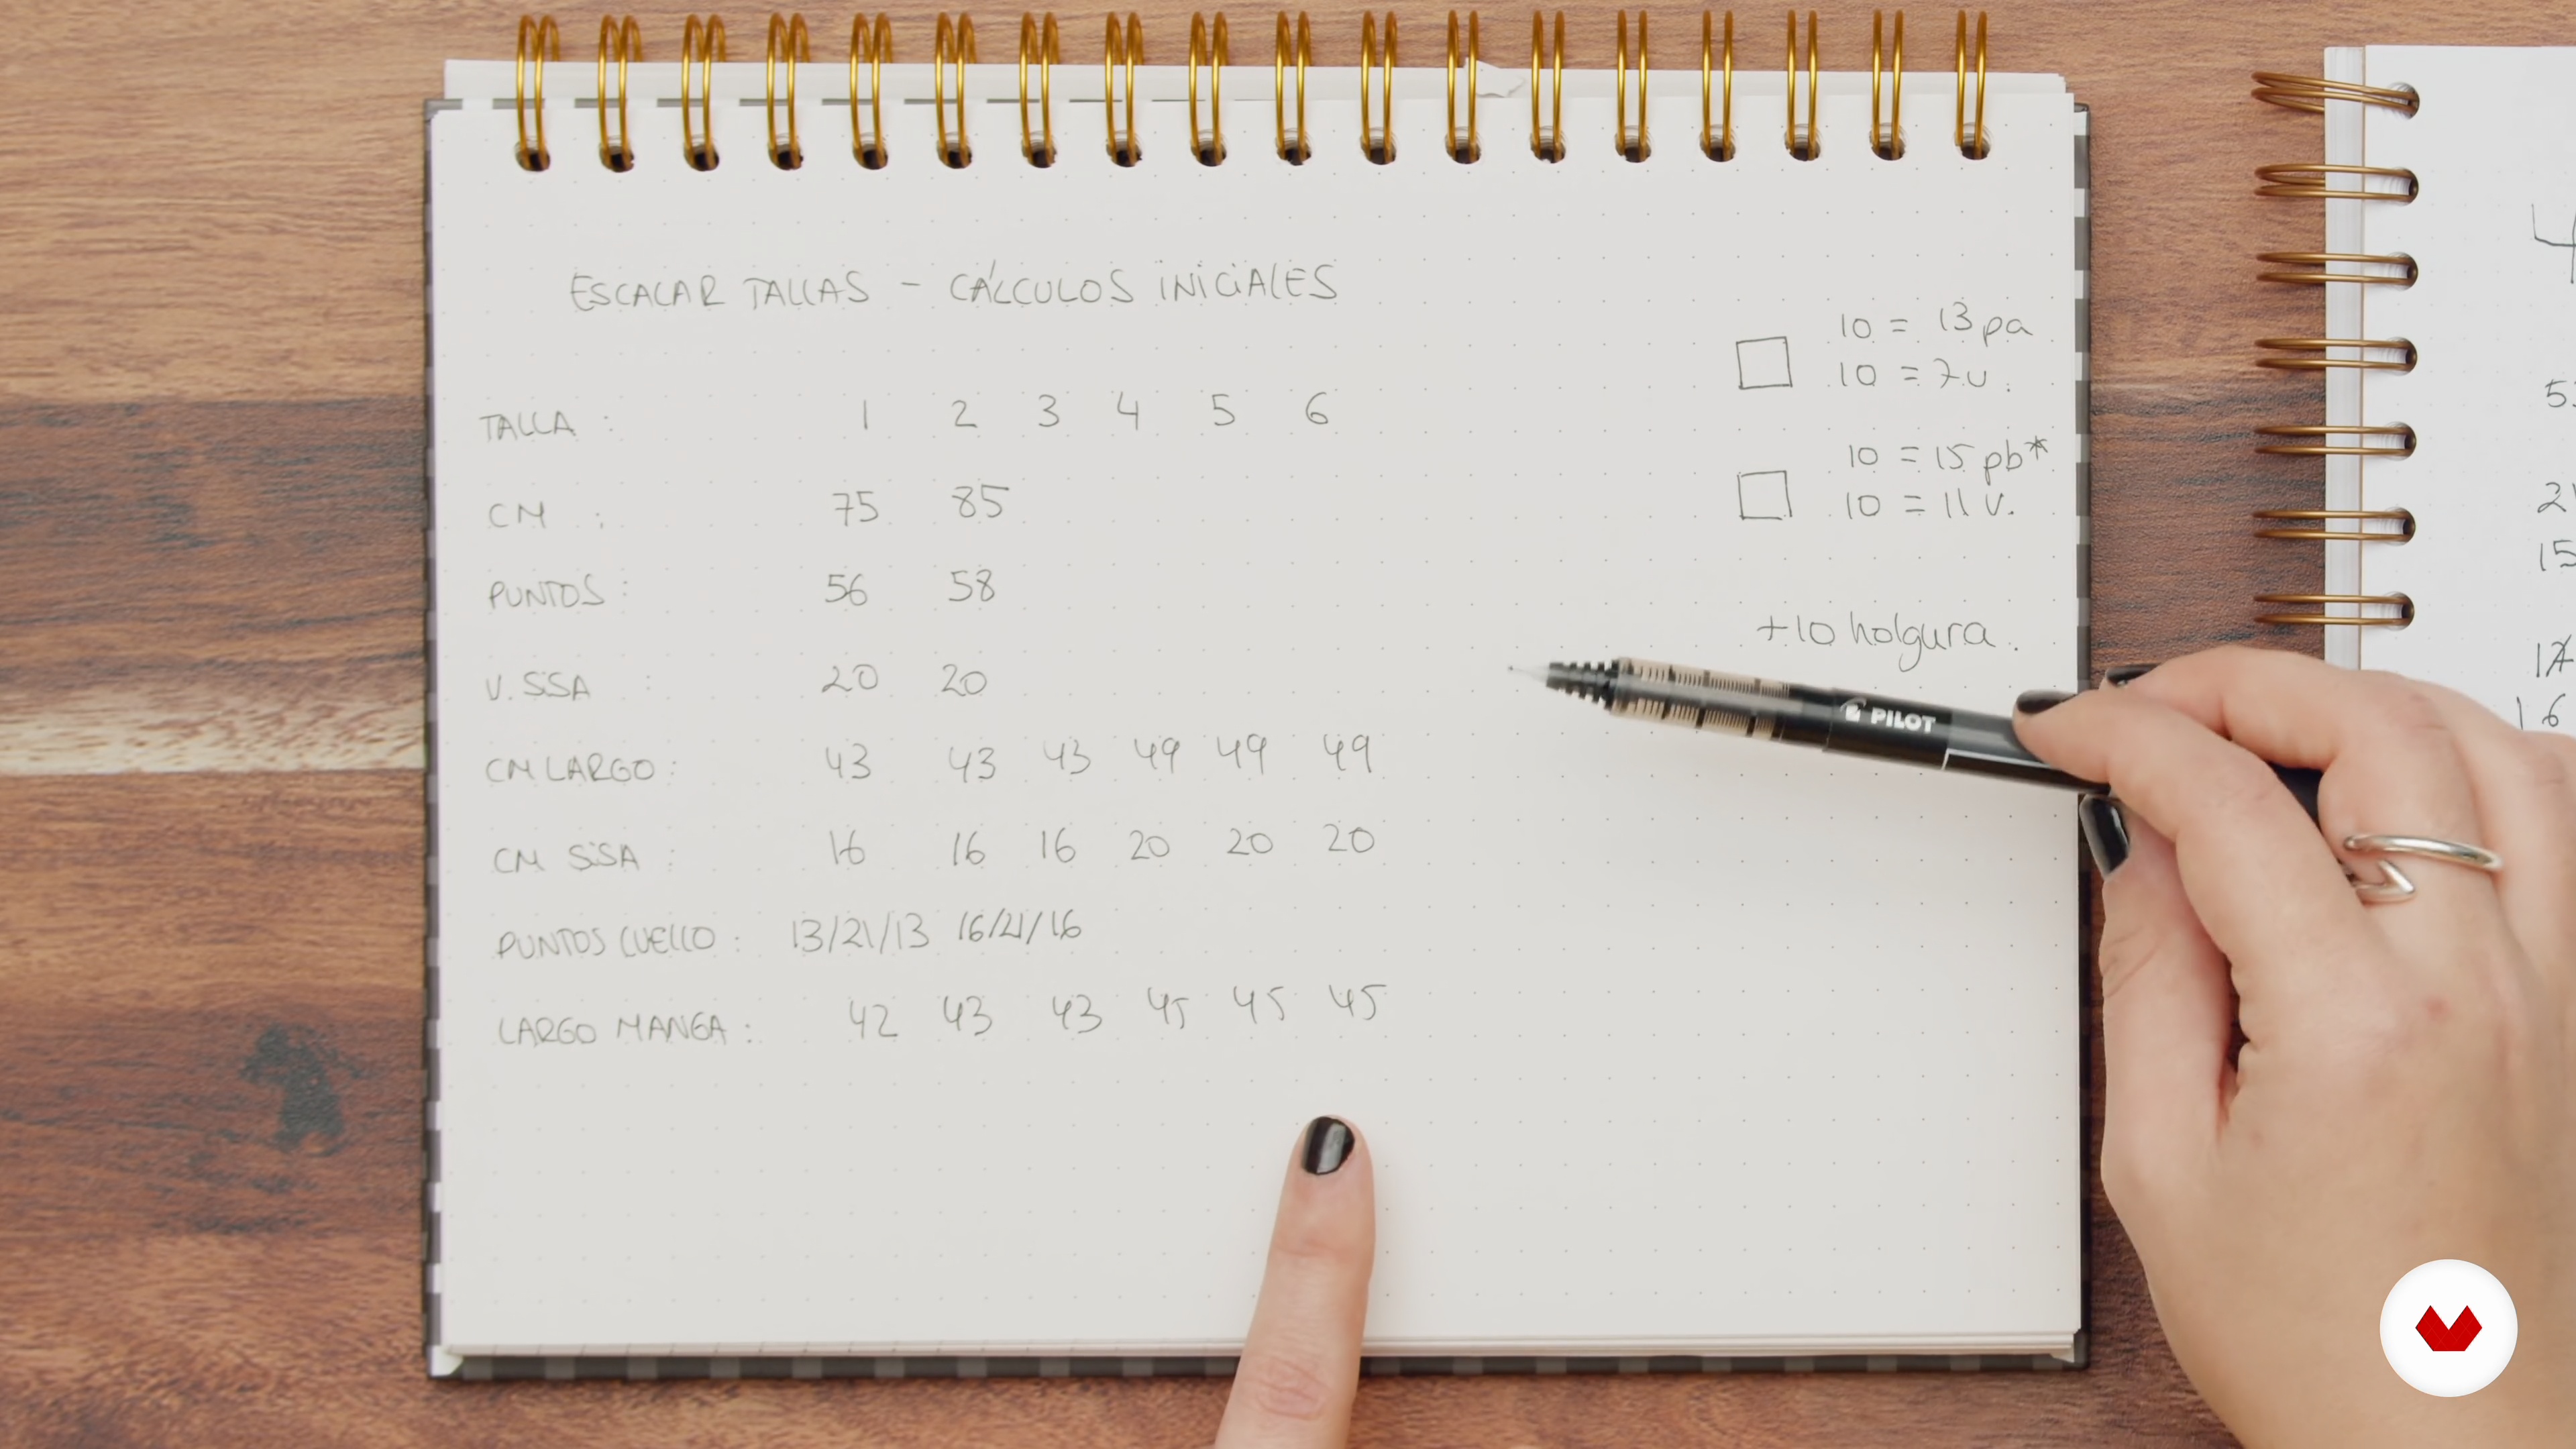 ESCALAR TALLAS - CÁLCULOS INICIALES
TALLA : 1 2 3 4 5 6
CM : 75 85
PUNTOS : 56 58
V. SISA : 20 20
CM LARGO : 43 43 43 49 49 49
CM SISA : 16 16 16 20 20 20
PUNTOS CUELLO : 13/21/13 16/21/16
LARGO MANGA : 42 43 43 45 45 45
10 = 13 pa
10 = 7 v.
10 = 15 pb*
10 = 11 v.
+10 holgura.
PILOT
4
5
2
15
16